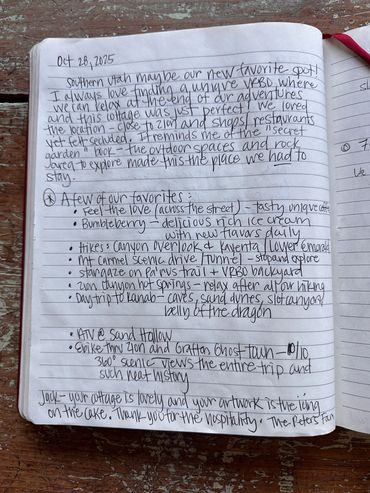 Oct 28, 2025
Southern Utah maybe our new favorite spot!
I always love finding a unique VRBO where
we can relax at the end of our adventures
and this cottage was just perfect! We loved
the location - close to Zion and shops/restaurants
yet felt secluded. It reminds me of the "secret
garden" book - the outdoor spaces and rock
area to explore made this the place we had to
stay.
A few of our favorites:
• Feel the love (across the street) - tasty unique coffee
• Bumbleberry - delicious rich ice cream
with new flavors daily
• Hikes: Canyon Overlook & Kayenta/Lower Emerald
• Mt Carmel Scenic drive/Tunnel - stop and explore
• stargaze on Pa'rus trail + VRBO backyard
• Zion Canyon Hot Springs - relax after all our hiking
• Day trip to Kanab - caves, sand dunes, slot canyons
belly of the dragon
• ATV @ Sand Hollow
• Ebike thru Zion and Grafton Ghost town - 10/10,
360° scenic views the entire trip and
such neat history
Jack - your cottage is lovely and your artwork is the icing
on the cake. Thank you for the hospitality. The Peters Fam